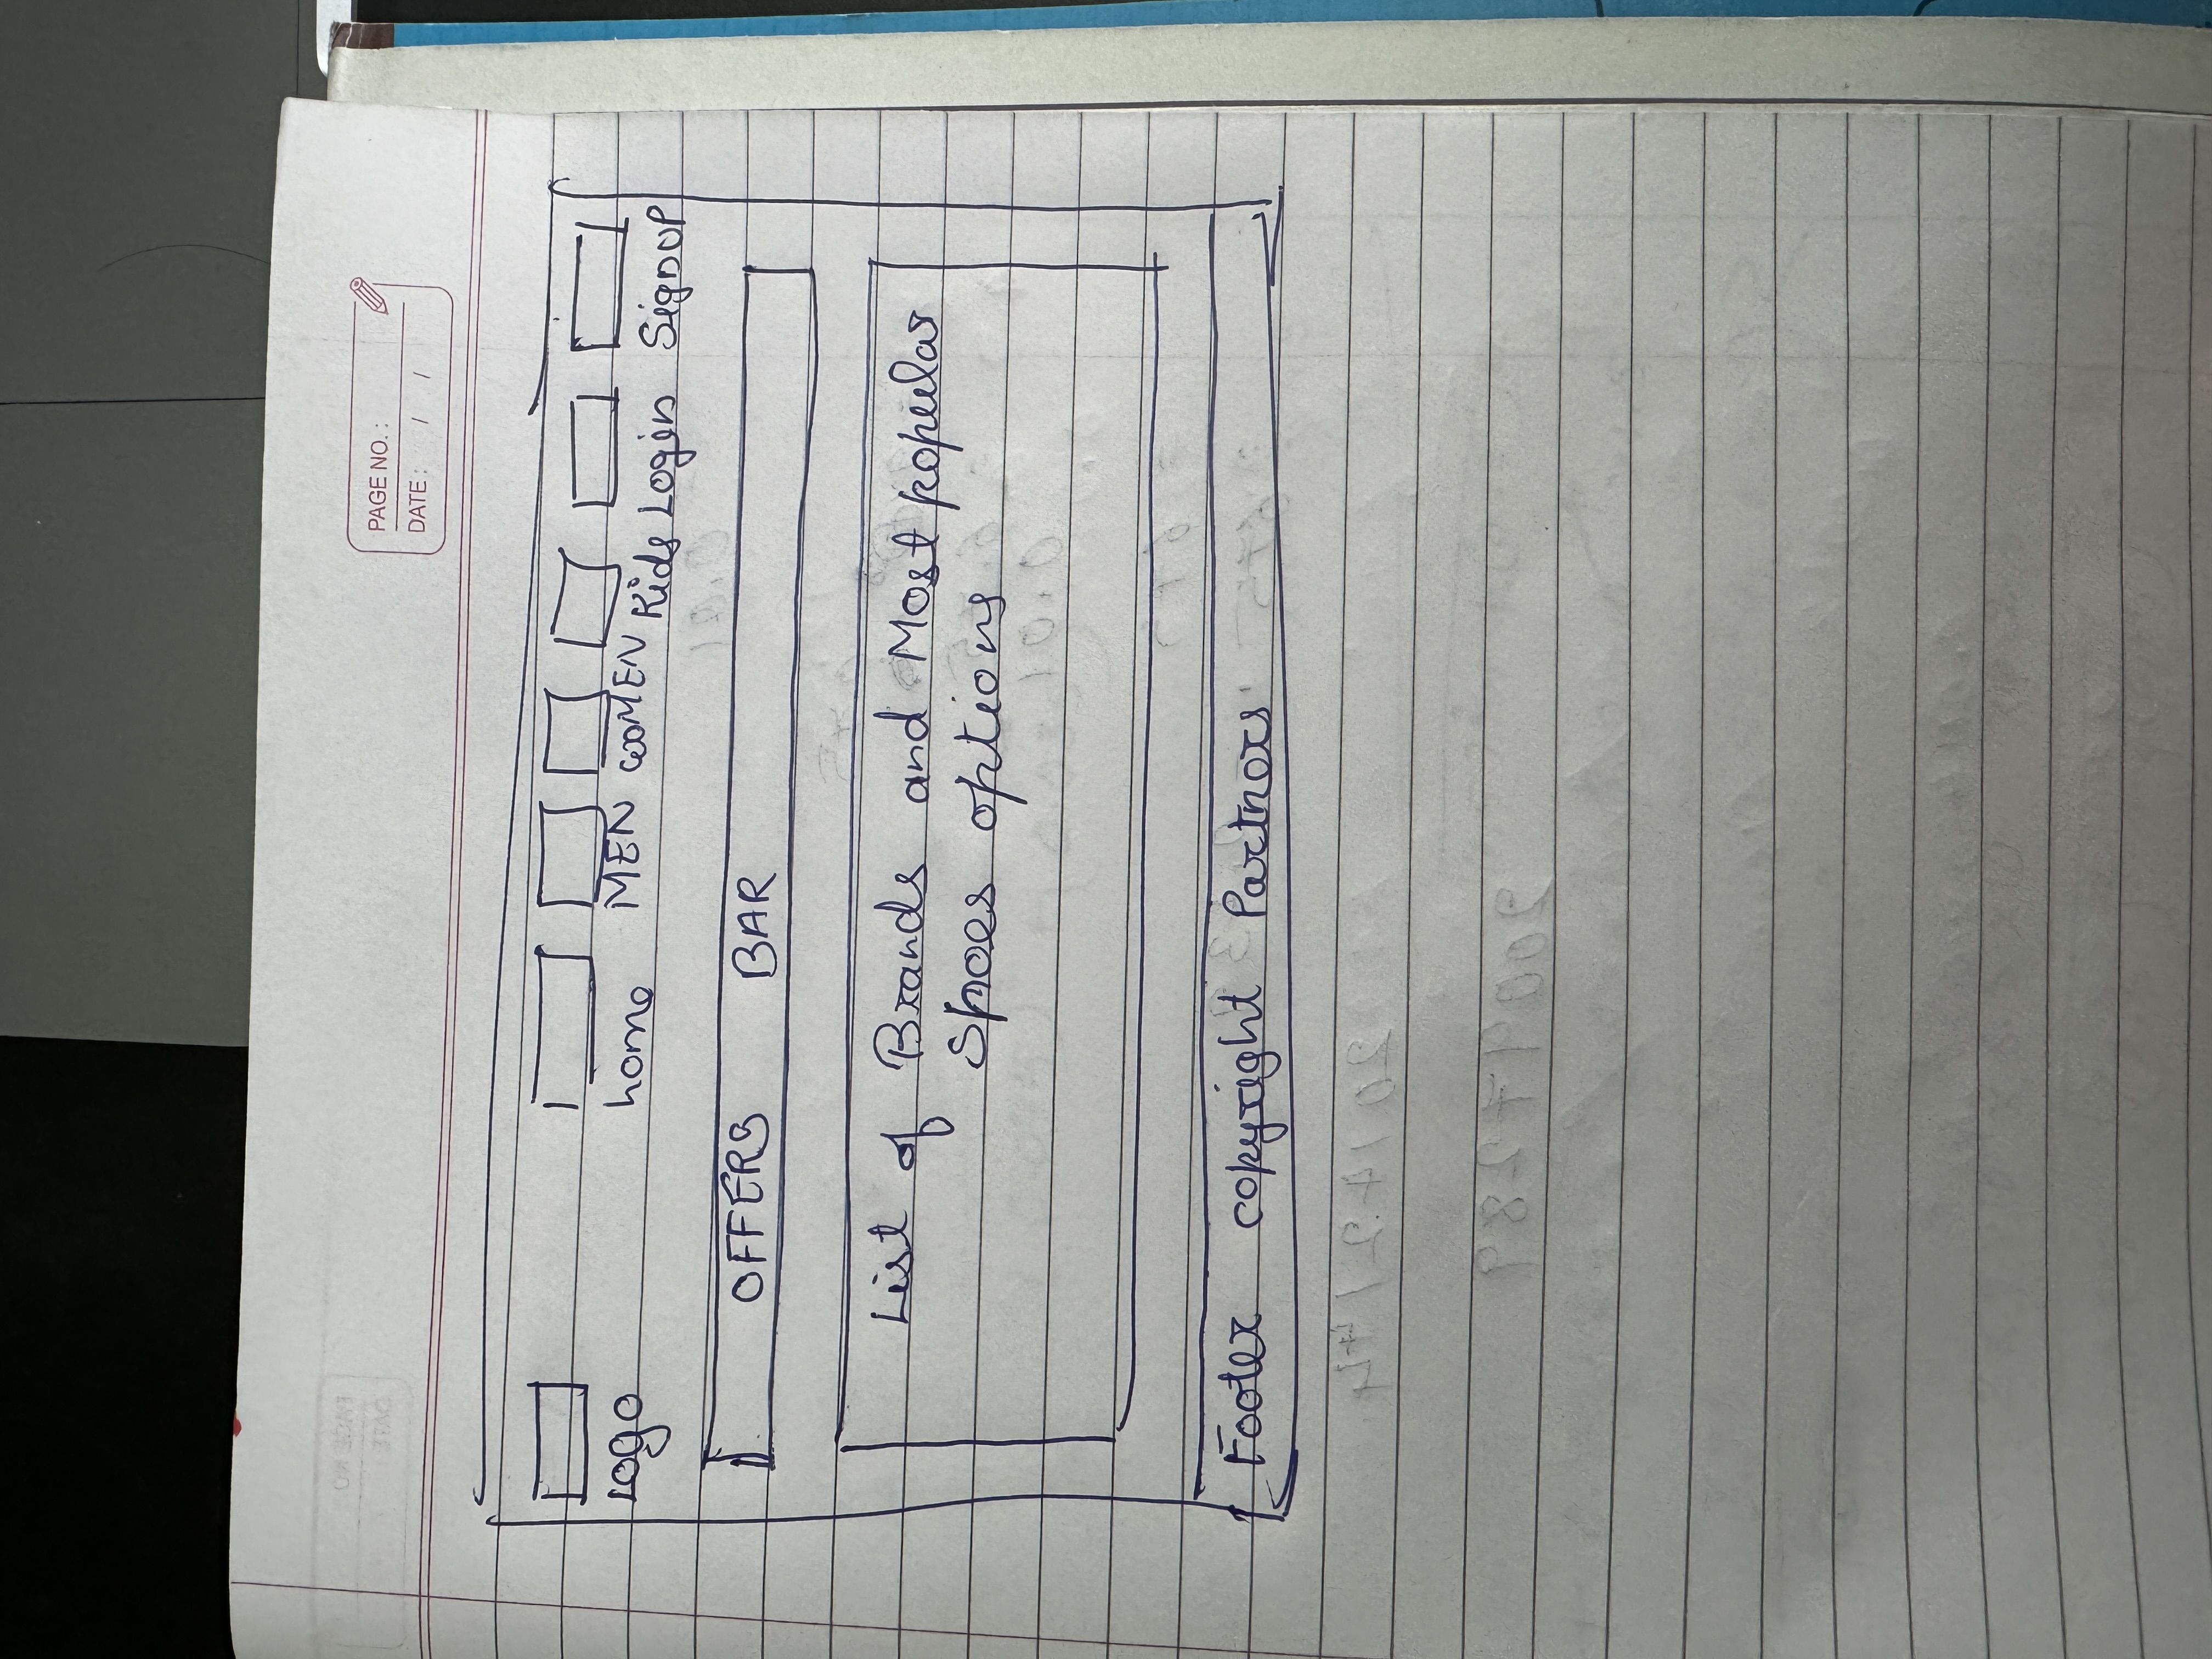 PAGE NO. :
DATE : / /
Logo home MEN WOMEN Kids Login Signup
OFFERS BAR
List of Brands and Most popular
Shoes options
Footer copyright Partners